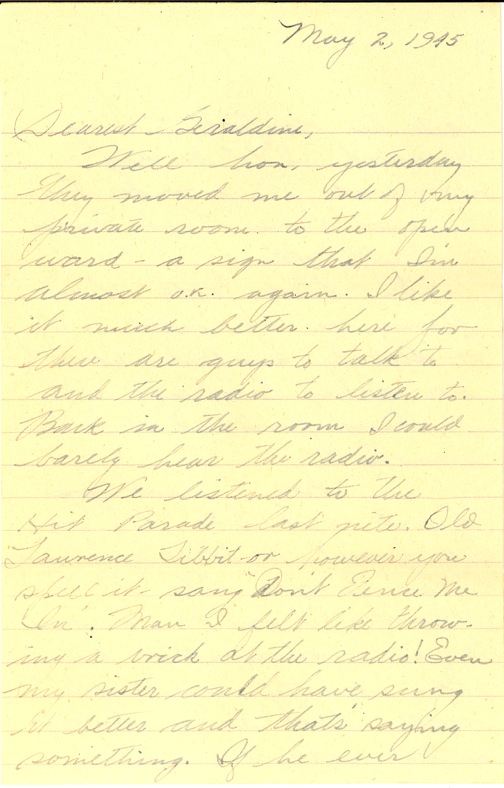 May 2, 1945
Dearest Geraldine,
Well hon, yesterday
they moved me out of my
private room to the open
ward - a sign that I'm
almost o.k. again. I like
it much better here for
there are guys to talk to
and the radio to listen to.
Back in the room I could
barely hear the radio.
We listened to the
Hit Parade last nite. Old
Laurence Tibbit - or however you
spell it - sang "Don't Fence Me
In". Man I felt like throw-
ing a brick at the radio! Even
my sister could have sung
it better and that's saying
something. If he ever